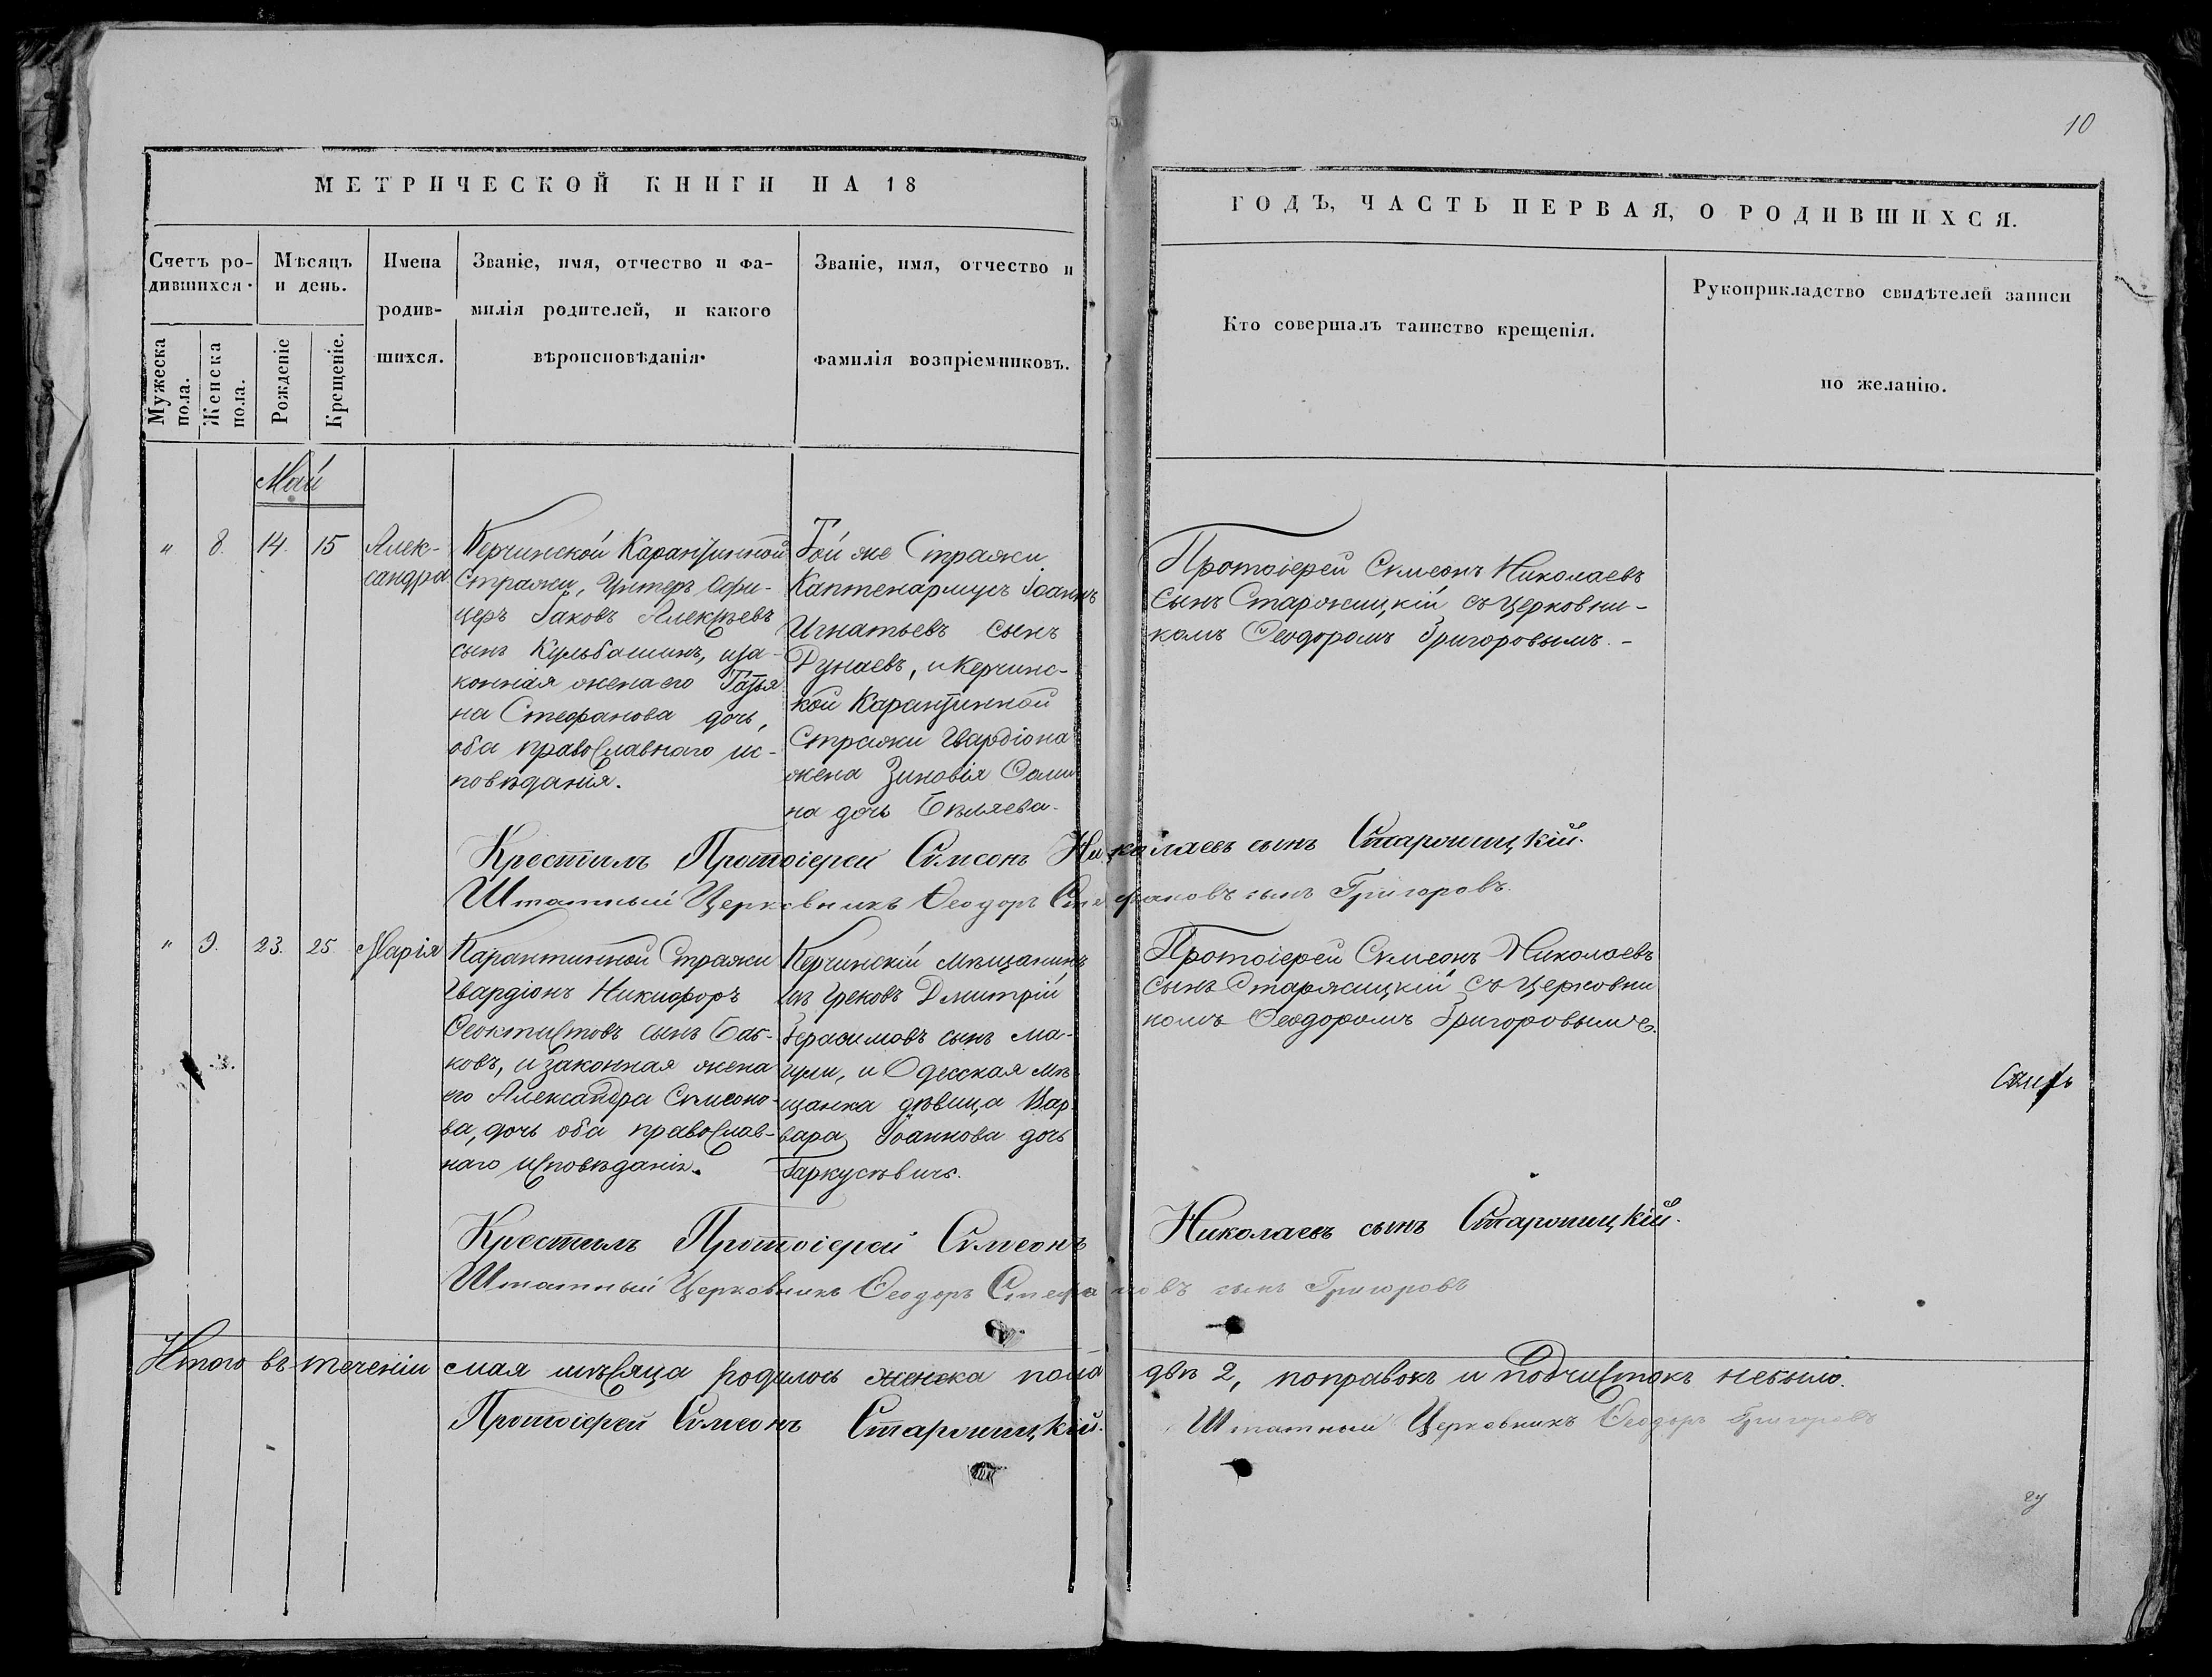 10
МЕТРИЧЕСКОЙ КНИГИ НА 18
ГОДЪ, ЧАСТЬ ПЕРВАЯ, О РОДИВШИХСЯ.
Счетъ ро-
дившихся.
Мужеска
пола.
Женска
пола.
Мѣсяцъ
и день.
Рожденіе
Крещеніе.
Имена
родив-
шихся.
Званіе, имя, отчество и фа-
милія родителей, и какого
вѣроисповѣданія.
Званіе, имя, отчество и
фамилія воспріемниковъ.
Кто совершалъ таинство крещенія.
Рукоприкладство свидѣтелей записи
по желанію.
Май
" 8. 14. 15
Алек-
сандра
Керчинской Карантинной
Стражи, Унтеръ Офи-
церъ Іаковъ Алексѣевъ
сынъ Кульбашинъ, иза-
конная жена его Татья
на Стефанова дочь,
оба православнаго ис-
повѣданія.
Той же Стражи
Каптенармусъ Іоаннъ
Игнатьевъ сынъ
Дунаевъ, и Керчинс-
кой Карантинной
Стражи Гвардіона
жена Зиновія Ѳоми
на дочь Бѣляева.
Протоіерей Сѵмеонъ Николаевъ
сынъ Старожицкій съ церковни-
комъ Ѳеодоромъ Григоровымъ.-
Крестилъ Протоіерей Сѵмеонъ Николаевъ сынъ Старожицкій.
Штатный Церковникъ Ѳеодоръ Стефановъ сынъ Григоровъ.
" 9. 23. 25
Марія
Карантинной Стражи
Гвардіонъ Никифоръ
Ѳеоктистовъ сынъ Бас-
ковъ, и законная жена
его Александра Сѵмеоно-
ва, дочь оба православ-
наго исповѣданія.
Керчинскій мѣщанинъ
изъ Грековъ Дмитрій
Герасимовъ сынъ Ма-
цули, и Одесская мѣ-
щанка дѣвица Вар-
вара Іоаннова дочь
Гаркусѣвичъ.
Протоіерей Сѵмеонъ Николаевъ
сынъ Старожицкій съ церковни
комъ Ѳеодоромъ Григоровымъ.
Крестилъ Протоіерей Сѵмеонъ Николаевъ сынъ Старожицкій.
Штатный Церковникъ Ѳеодоръ Стефановъ сынъ Григоровъ
Итого въ теченіи мая мѣсяца родилось женска пола двѣ 2, поправокъ и подчистокъ небыло.
Протоіерей Сѵмеонъ Старожицкій.
Штатный Церковникъ Ѳеодоръ Григоровъ